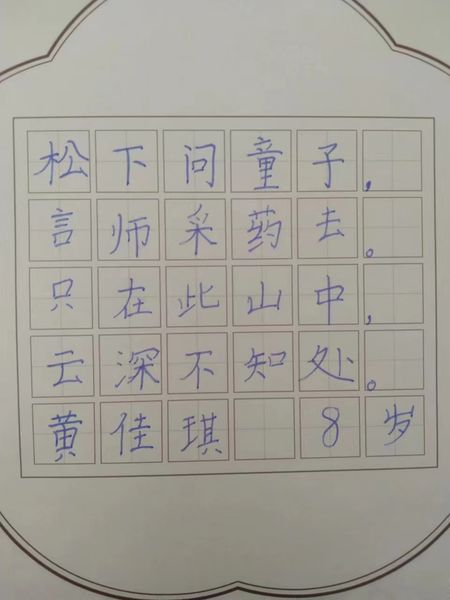 松下问童子，
言师采药去。
只在此山中，
云深不知处。
黄佳琪 8岁